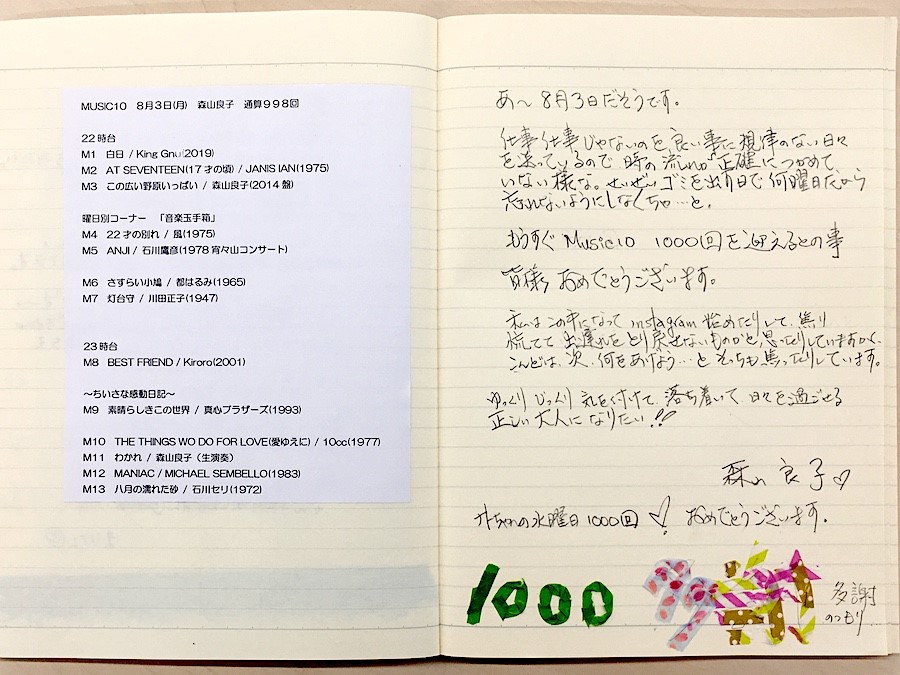 MUSIC10　8月3日(月)　森山良子　通算998回
22時台
M1　白日 / King Gnu(2019)
M2　AT SEVENTEEN(17才の頃) / JANIS IAN(1975)
M3　この広い野原いっぱい / 森山良子(2014盤)
曜日別コーナー　「音楽玉手箱」
M4　22才の別れ / 風(1975)
M5　ANJI / 石川鷹彦(1978宵々山コンサート)
M6　さすらい小鳩 / 都はるみ(1965)
M7　灯台守 / 川田正子(1947)
23時台
M8　BEST FRIEND / Kiroro(2001)
～ちいさな感動日記～
M9　素晴らしきこの世界 / 真心ブラザーズ(1993)
M10　THE THINGS WO DO FOR LOVE(愛ゆえに) / 10cc(1977)
M11　わかれ / 森山良子（生演奏）
M12　MANIAC / MICHAEL SEMBELLO(1983)
M13　八月の濡れた砂 / 石川セリ(1972)
あ～8月3日だそうです。
仕事仕事じゃないのを良い事に規律のない日々
を送っているので 時の流れが正確につかめて
いない様な。せいぜいゴミを出す日で何曜日だから
忘れないようにしなくちゃ…と。
もうすぐ Music10 1000回を迎えるとの事
皆様 おめでとうございます。
私はこの年になって instagram 始めたりして、焦り
慌てて 出遅れをとり戻せないものかと思ったりしていますから、
こんどは、次、何をあげよう…と そっちも焦ったりしています。
ゆっくり じっくり 気を付けて 落ち着いて 日々を過ごせる
正しい大人になりたい!!
森山良子♡
の水曜日1000回! おめでとうございます。
1000 多謝
多謝
のつもり